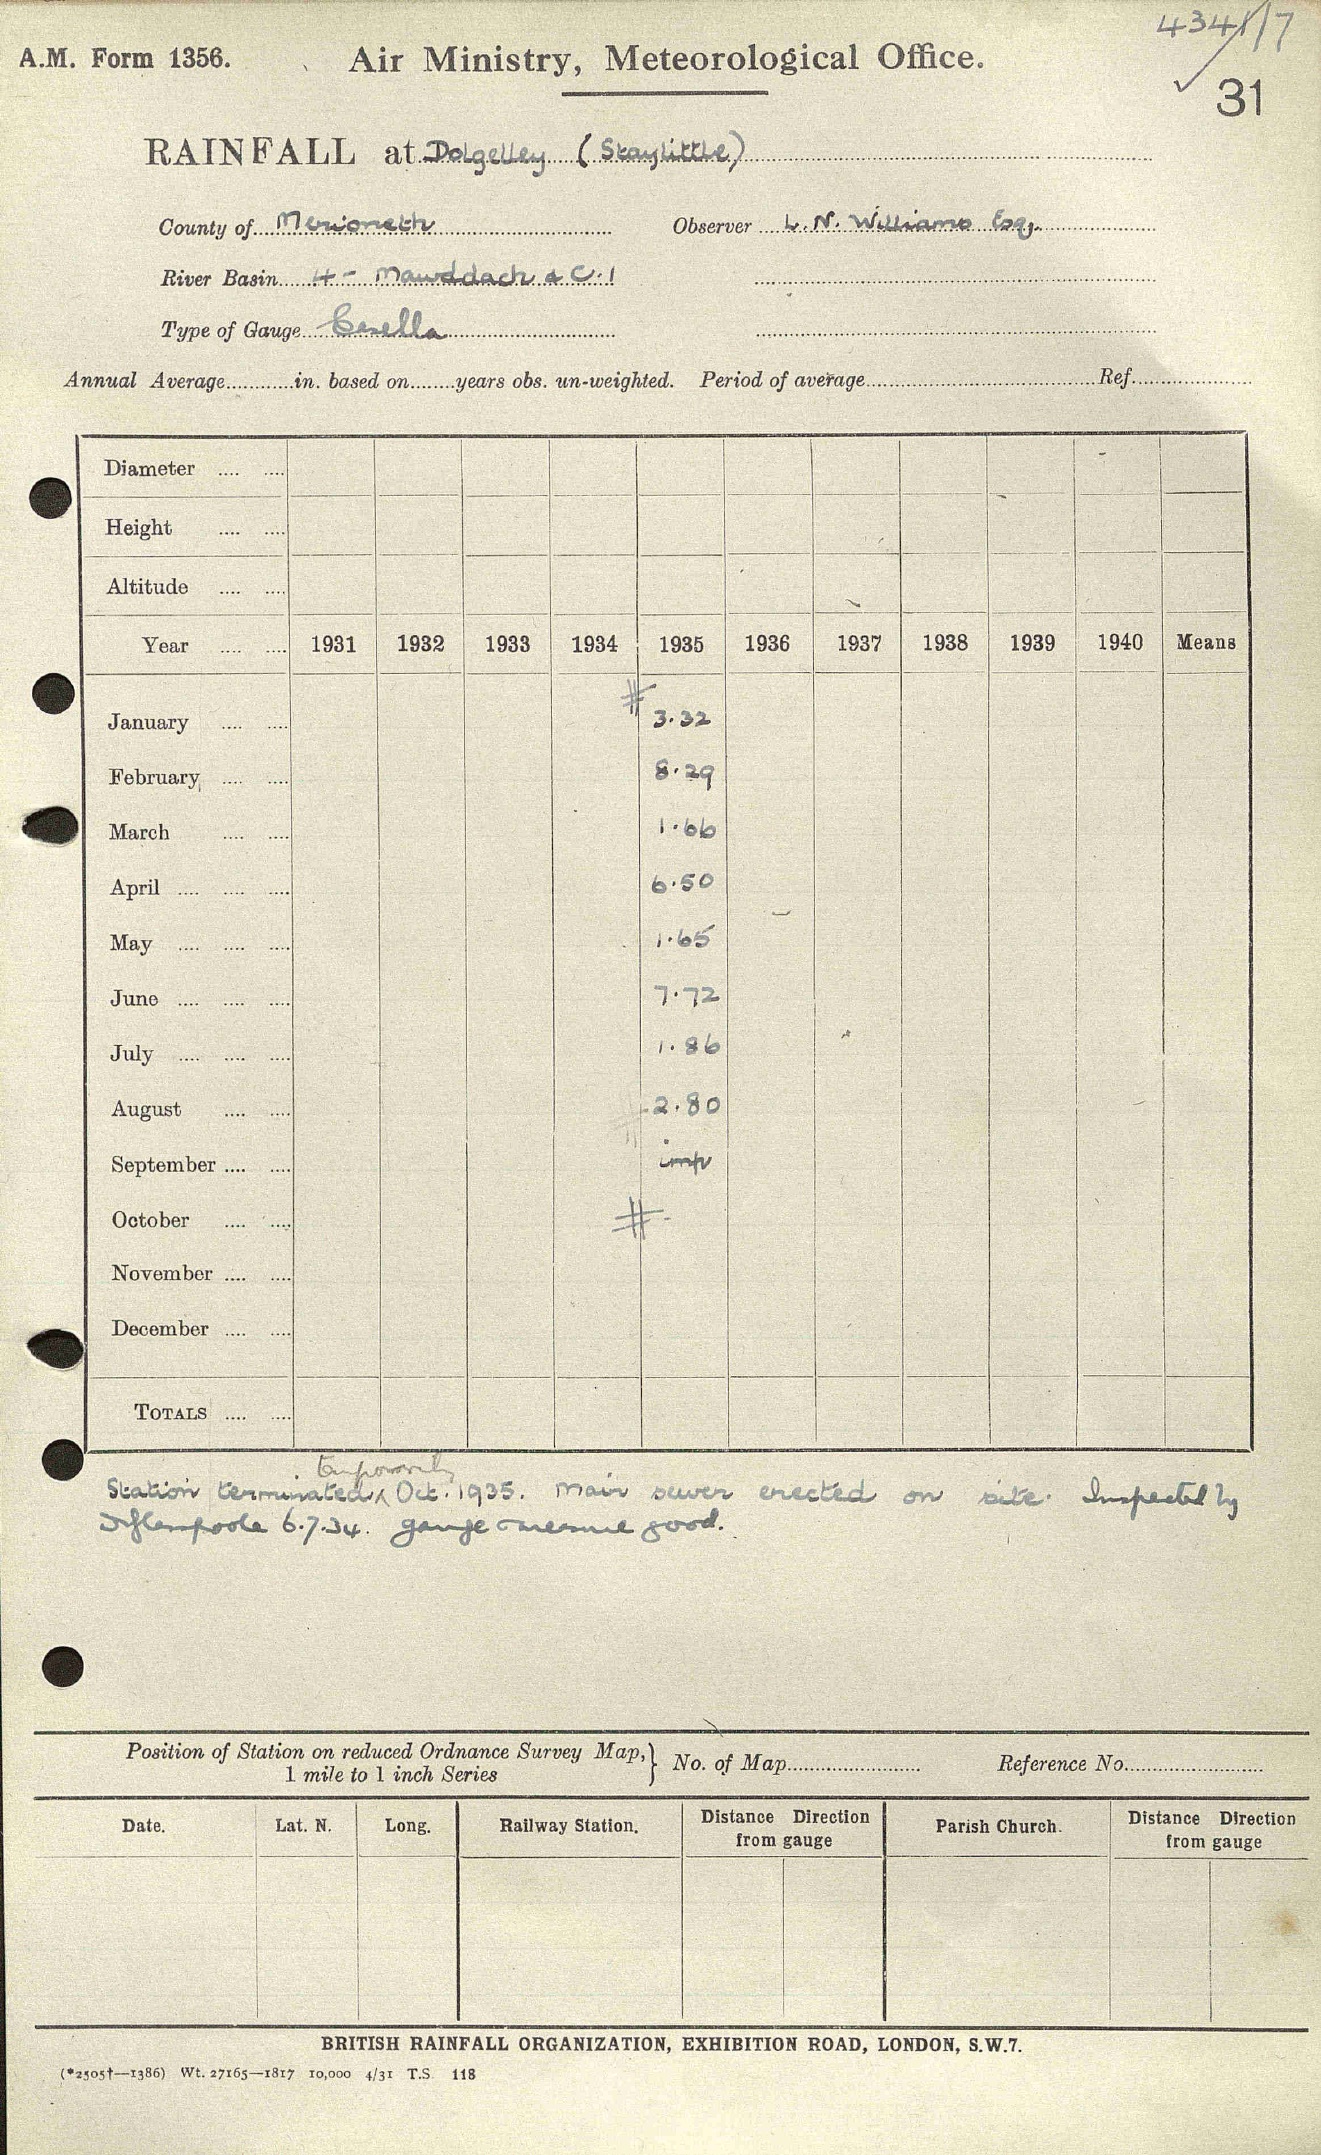 4341/7
A.M. Form 1356. Air Ministry, Meteorological Office.
31
RAINFALL at Dolgelley (Staylittle)
County of Merioneth Observer L. N. Williams Esq.
River Basin 4 - Mawddach & C. 1
Type of Gauge Casella
Annual Average............in. based on........years obs. un-weighted. Period of average............ Ref............
Diameter .... ....
Height .... ....
Altitude .... ....
Year .... .... 1931 1932 1933 1934 1935 1936 1937 1938 1939 1940 Means
January .... .... # 3.32
February .... .... 8.29
March .... .... 1.66
April .... .... .... 6.50
May .... .... .... 1.65
June .... .... .... 7.72
July .... .... .... 1.86
August .... .... # 2.80
September .... .... imp
October .... .... #
November .... ....
December .... ....
TOTALS .... ....
temporarily
Station terminated Oct. 1935. Main sewer erected on site. Inspected by
6.7.34. gauge measure good.
Position of Station on reduced Ordnance Survey Map,} No. of Map............ Reference No............
1 mile to 1 inch Series
Date. Lat. N. Long. Railway Station. Distance Direction Parish Church. Distance Direction
from gauge from gauge
BRITISH RAINFALL ORGANIZATION, EXHIBITION ROAD, LONDON, S.W.7.
(*2505†—1386) Wt. 27165—1817 10,000 4/31 T.S. 118